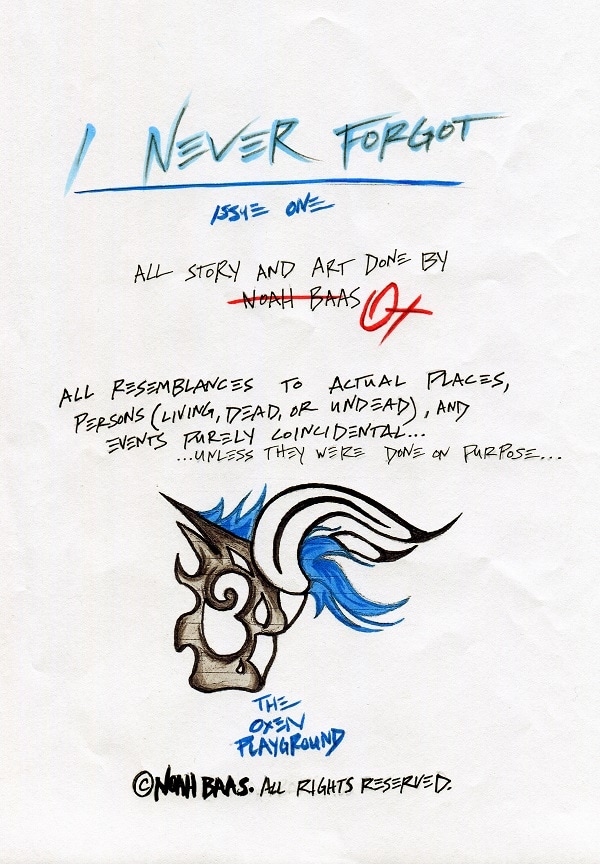 I NEVER FORGOT
ISSUE ONE
ALL STORY AND ART DONE BY
NOAH BAAS OX
ALL RESEMBLANCES TO ACTUAL PLACES,
PERSONS (LIVING, DEAD, OR UNDEAD), AND
EVENTS PURELY COINCIDENTAL...
...UNLESS THEY WERE DONE ON PURPOSE...
THE
OXEN
PLAYGROUND
©NOAH BAAS. ALL RIGHTS RESERVED.